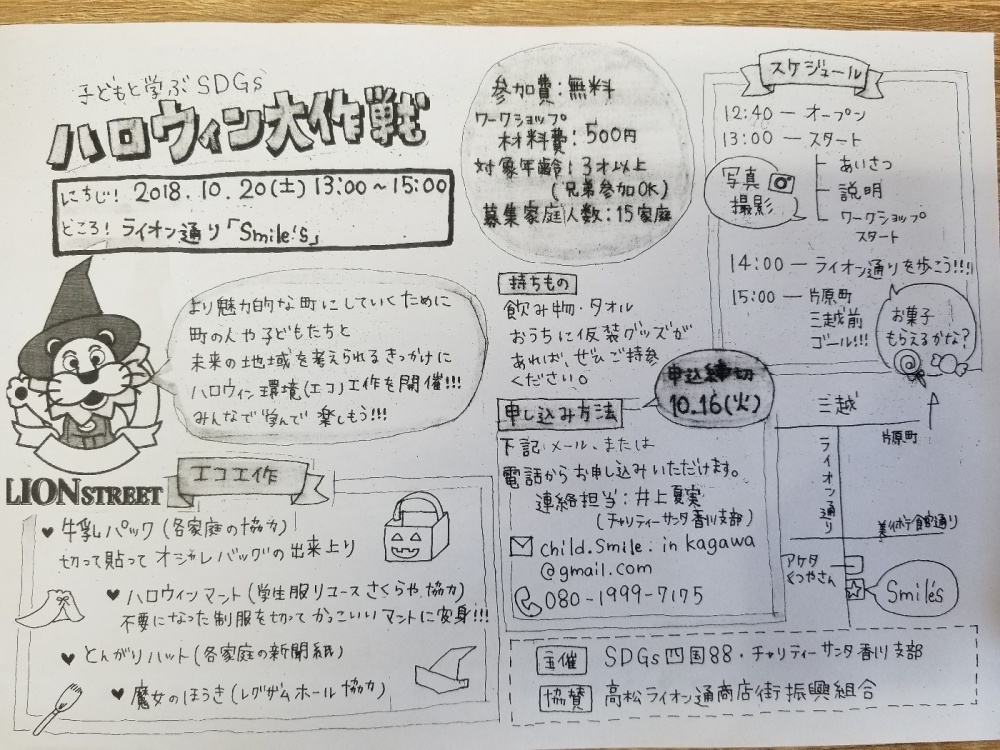 子どもと学ぶSDGs
ハロウィン大作戦
にちじ! 2018.10.20(土) 13:00～15:00
ところ! ライオン通り「Smile's」
より魅力的な町にしていくために
町の人や子どもたちと
未来の地域を考えられるきっかけに
ハロウィン環境(エコ)工作を開催!!!
みんなで学んで楽しもう!!!
LION STREET
エコ工作
♥ 牛乳パック(各家庭の協力)
切って貼ってオシャレバッグの出来上り
♥ ハロウィンマント(学生服リユースさくらや協力)
不要になった制服を切ってかっこいいマントに変身!!!
♥ とんがりハット(各家庭の新聞紙)
♥ 魔女のほうき(レグザムホール協力)
参加費:無料
ワークショップ
材料費:500円
対象年齢:3才以上
(兄弟参加OK)
募集家庭人数:15家庭
持ちもの
飲み物・タオル
おうちに仮装グッズが
あれば、ぜひご持参
ください。
申込締切
10.16(火)
申し込み方法
下記メール、または
電話からお申し込みいただけます。
連絡担当:井上夏実
(チャリティーサンタ香川支部)
child.smile.in kagawa
@gmail.com
080-1999-7175
スケジュール
12:40 — オープン
13:00 — スタート
あいさつ
説明
ワークショップ
スタート
写真
撮影
14:00 — ライオン通りを歩こう!!!
15:00 — 片原町
三越前
ゴール!!!
お菓子
もらえるかな?
三越
片原町
ライオン通り
美術館通り
アケタ
くつやさん
Smile's
主催 SDGs四国88・チャリティーサンタ香川支部
協賛 高松ライオン通商店街振興組合